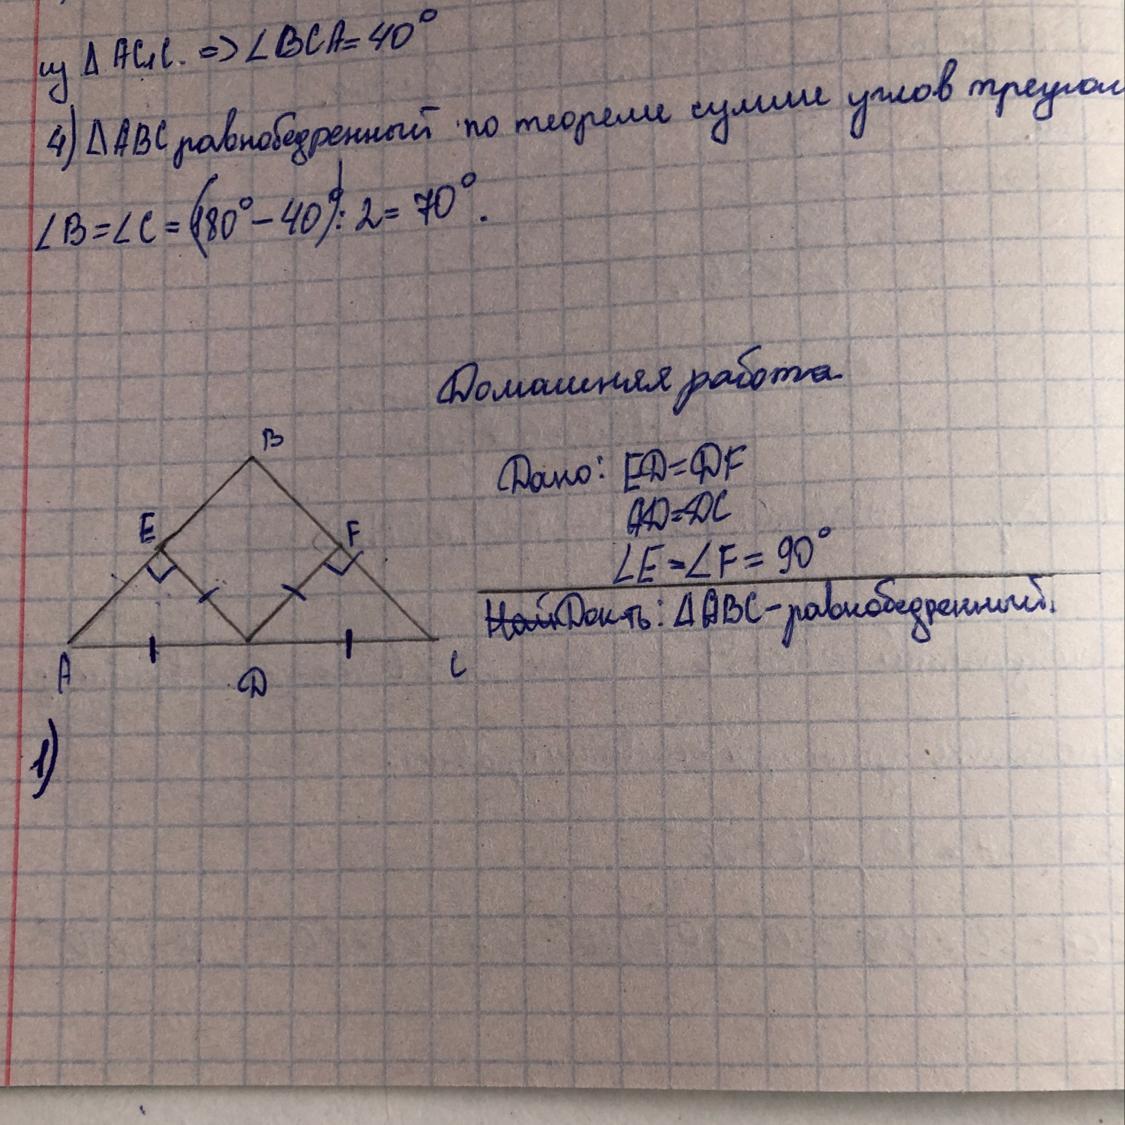 из Δ AC₁C. => ∠BCA = 40°
4) ΔABC равнобедренный по теореме сумме углов треугол
∠B = ∠C = (180° - 40°) : 2 = 70°.
Домашняя работа.
B
E
F
A
D
C
Дано: ED = DF
AD = DC
∠E = ∠F = 90°
Най Док-ть: ΔABC - равнобедренный.
1)